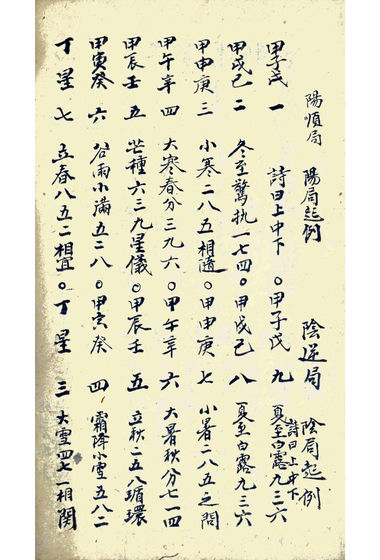 陽順局 陽局起例 陰逆局 陰局起例
甲子戊 一 詩曰上中下 ○甲子戊 九 夏至白露九三六 詩曰上中下
甲戌己 二 冬至驚执一七四○甲戌己 八 夏至白露九三六
甲申庚 三 小寒二八五相隨○甲申庚 七 小暑二八五之間
甲午辛 四 大寒春分三九六○甲午辛 六 大暑秋分七一四
甲辰壬 五 芒種六三九星儀○甲辰壬 五 立秋二五八環
甲寅癸 六 谷雨小滿五二八○甲寅癸 四 霜降小雪五八二
丁星 七 立春八五二相宜○丁星 三 大雪四七一相関